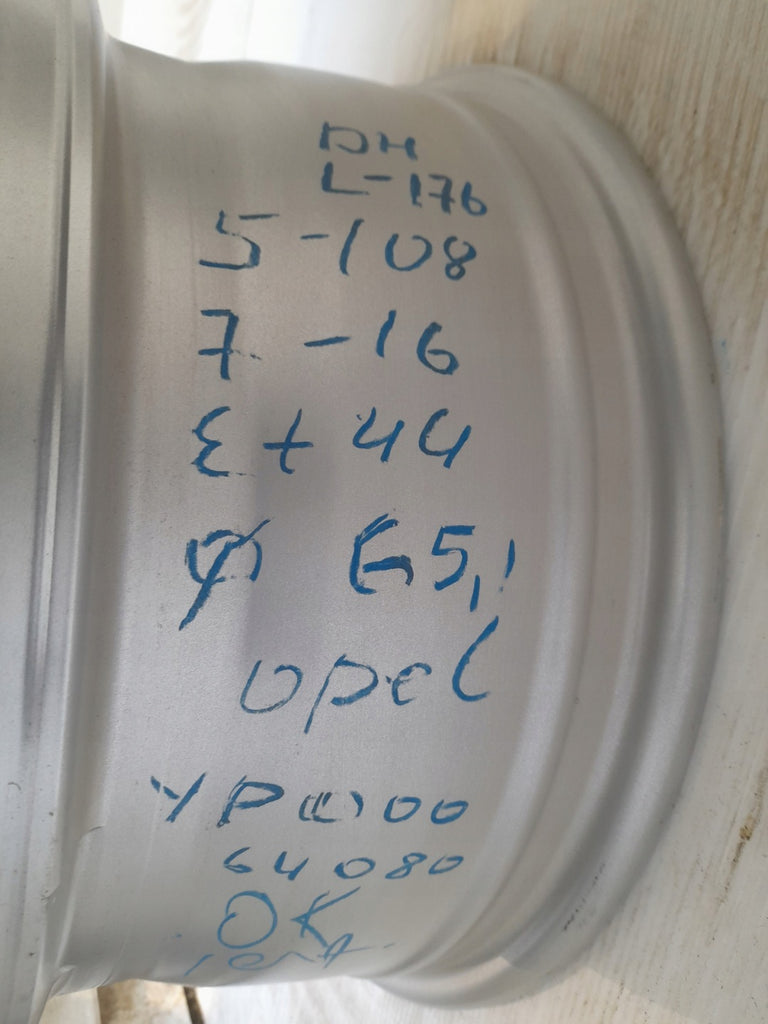 DH
L-176
5-108
7-16
Et 44
φ 65,1
opel
64080
OK